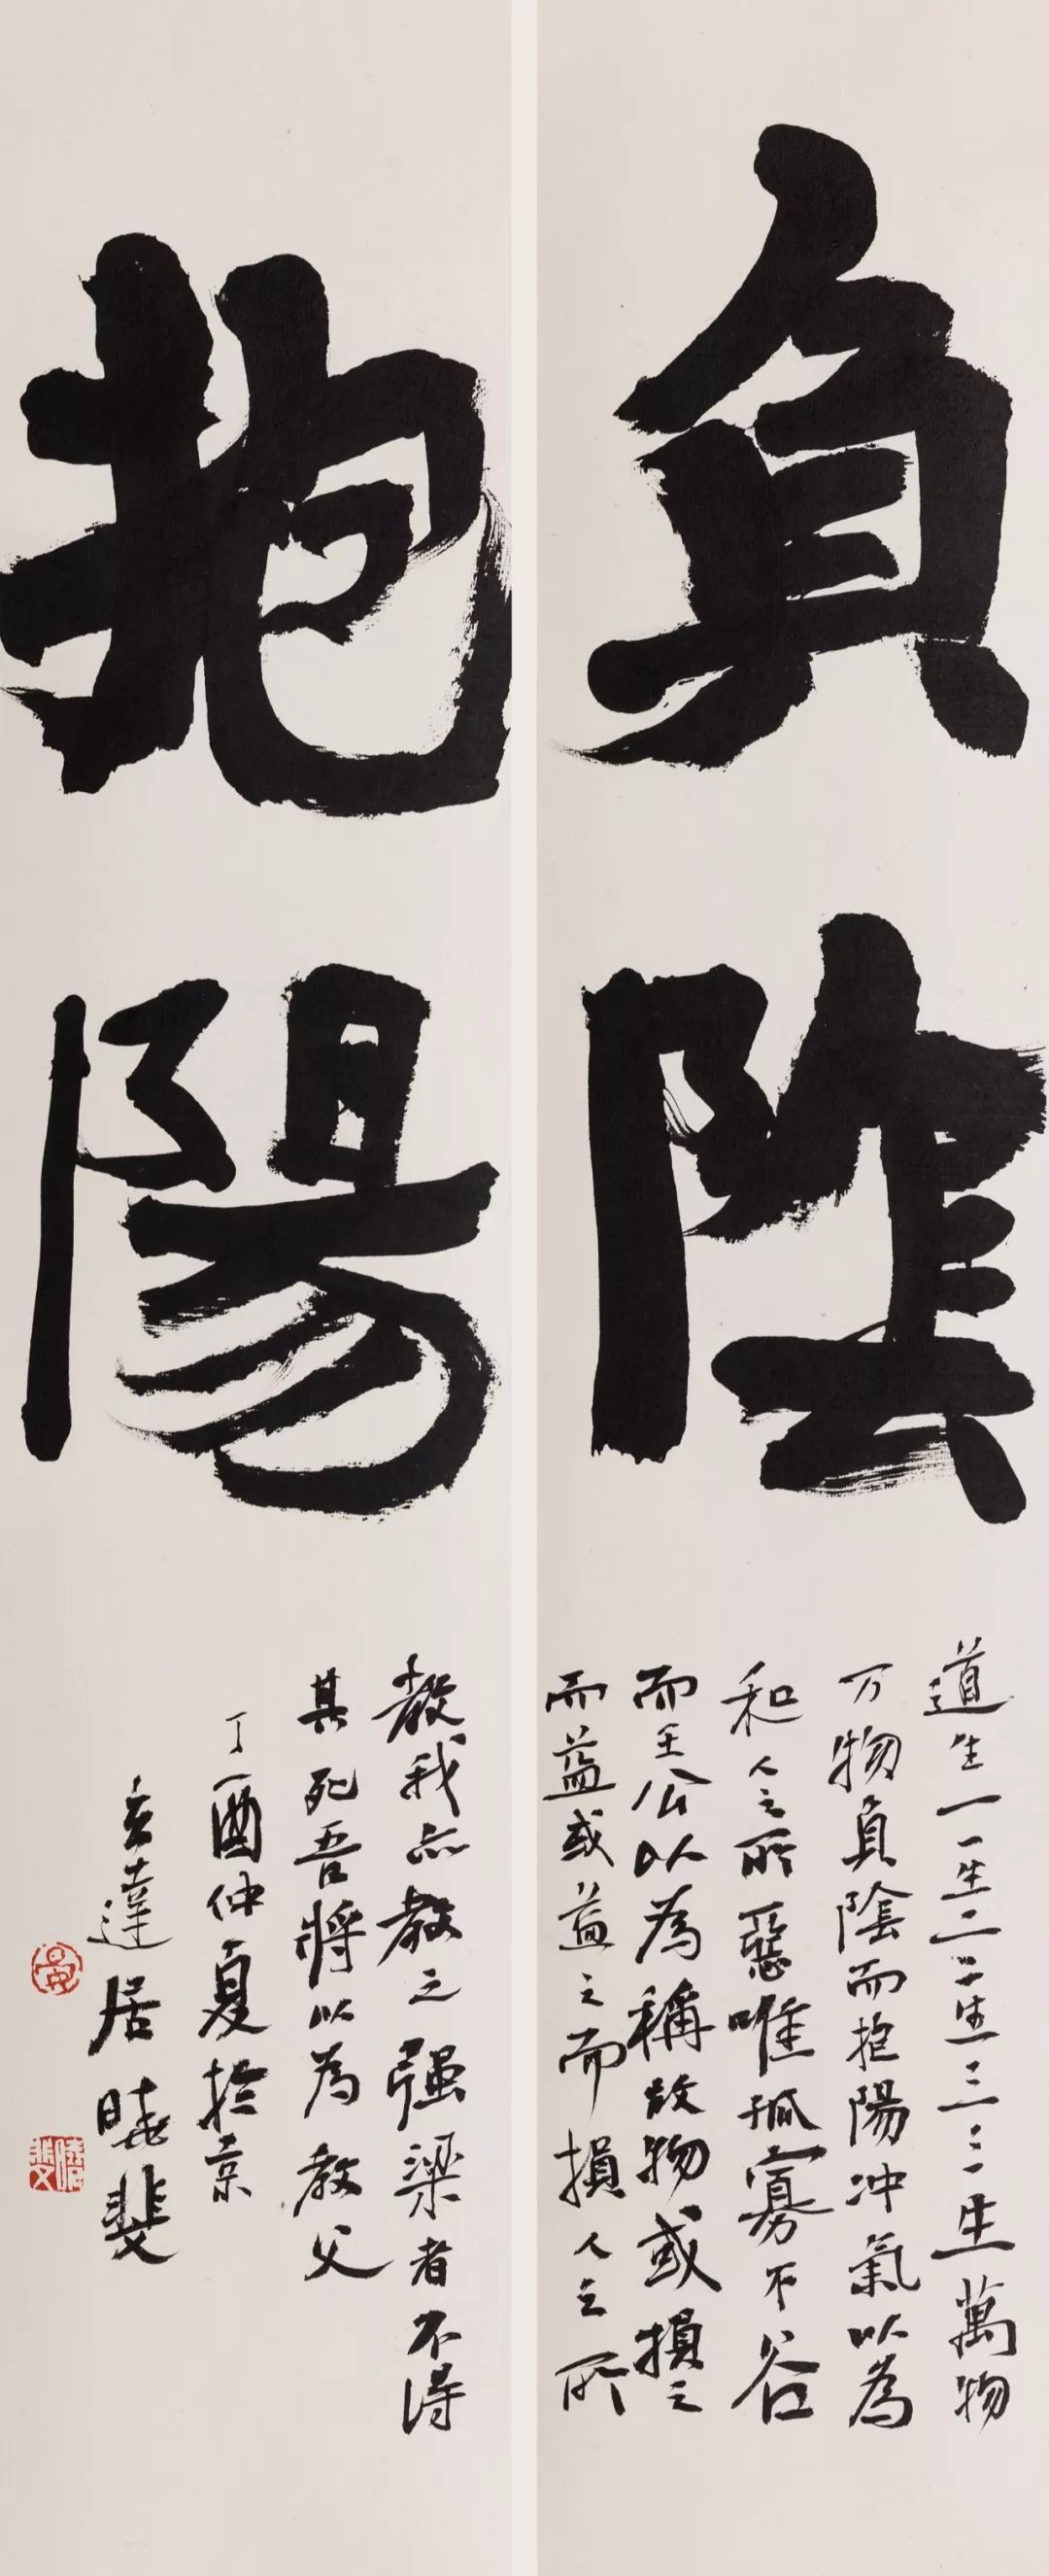 負陰
道生一一生二二生三三生萬物
万物負陰而抱陽冲氣以為
和人之所惡唯孤寡不谷
而王公以為稱故物或損之
而益或益之而損人之所
抱陽
教我亦教之强梁者不得
其死吾將以為教父
丁酉仲夏於京
達居曉斐
晏
曉斐